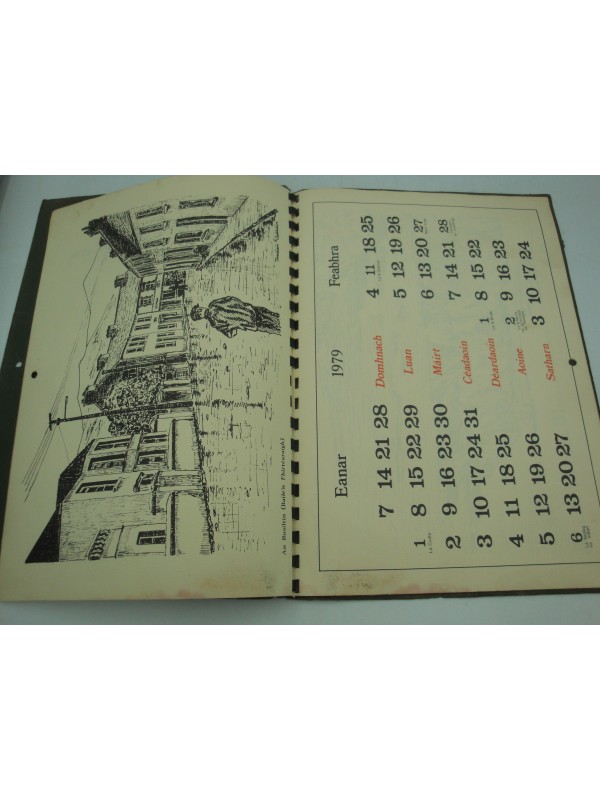 An Buailtín (Baile'n
Eanar 1979 Feabhra
7 14 21 28 Domhnach 4 11 18 25
1 8 15 22 29 Luan 5 12 19 26
2 9 16 23 30 Máirt 6 13 20 27
3 10 17 24 31 Céadaoin 7 14 21 28
4 11 18 25 Déardaoin 1 8 15 22
5 12 19 26 Aoine 2 9 16 23
6 13 20 27 Satharn 3 10 17 24